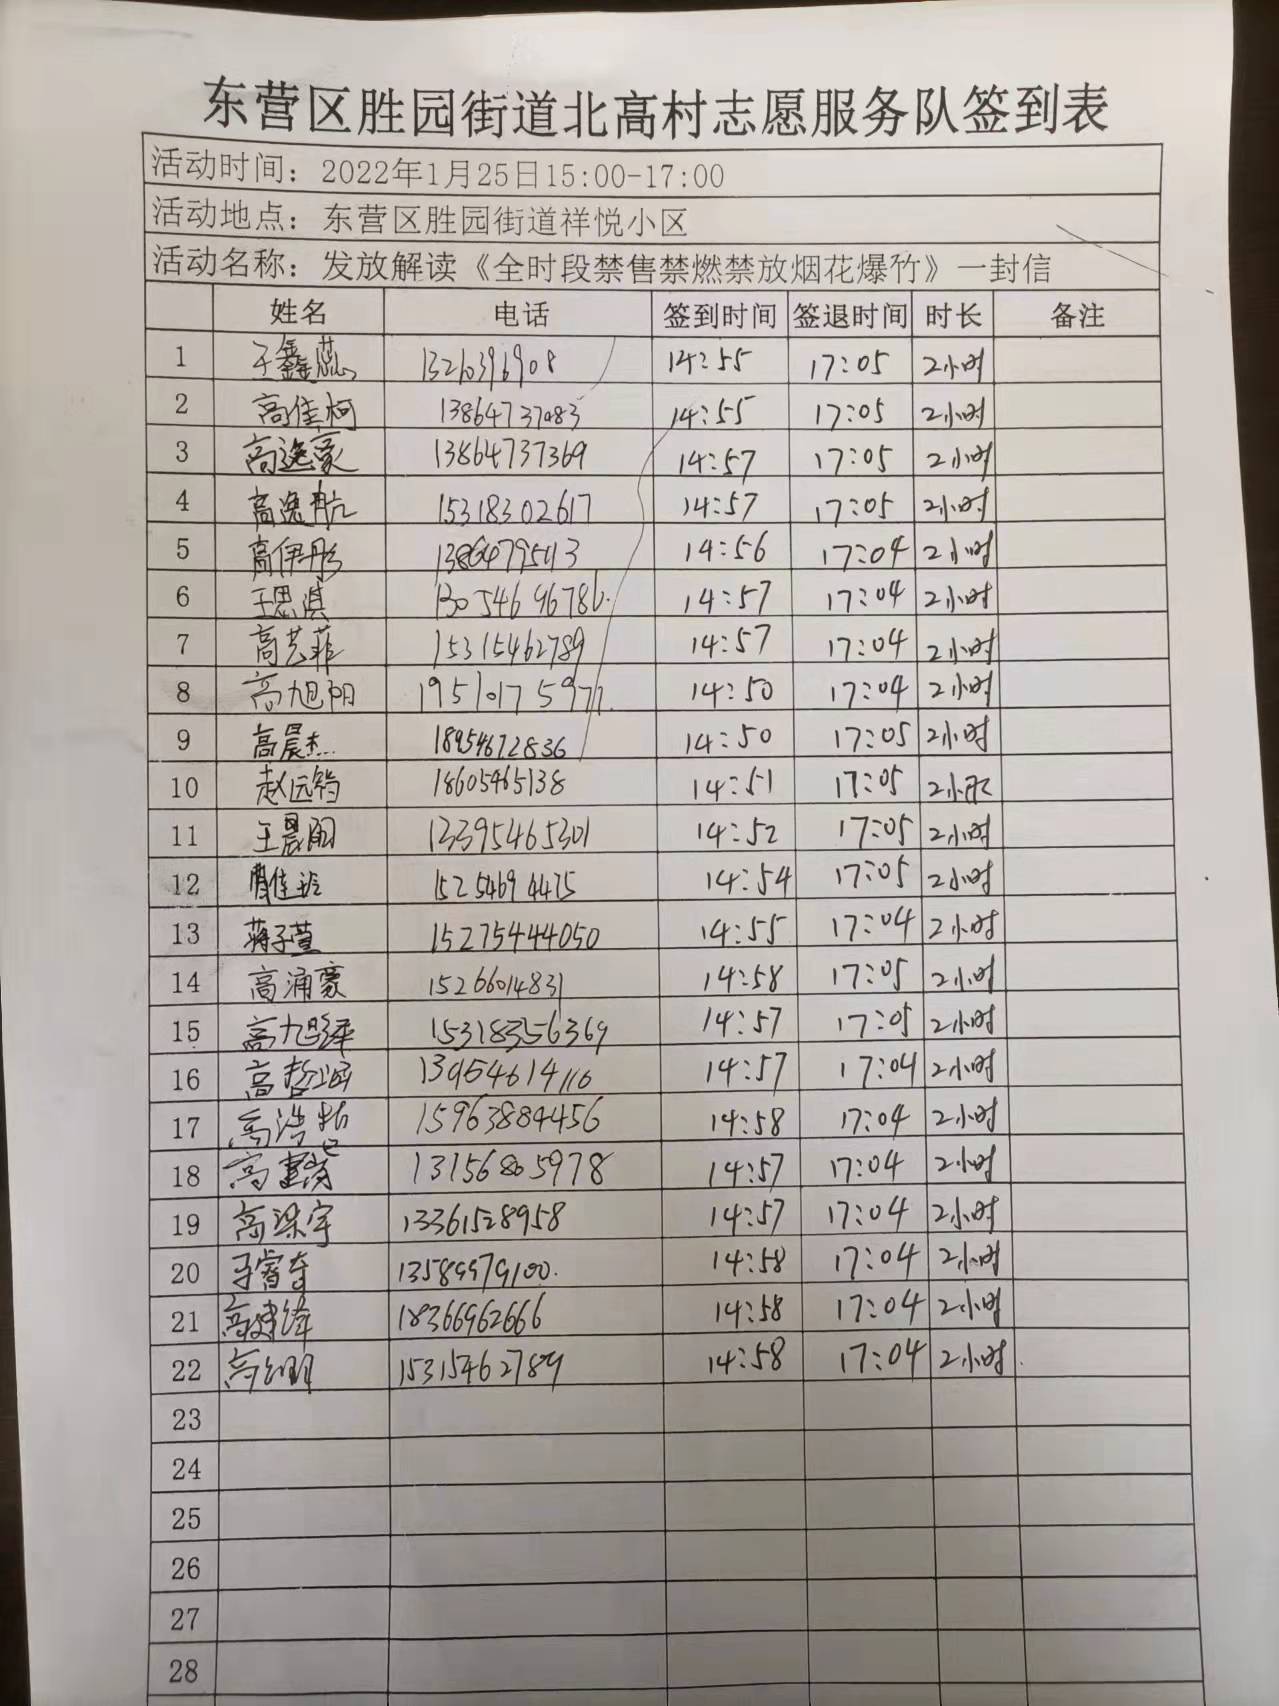 东营区胜园街道北高村志愿服务队签到表
活动时间：2022年1月25日15:00-17:00
活动地点：东营区胜园街道祥悦小区
活动名称：发放解读《全时段禁售禁燃禁放烟花爆竹》一封信
姓名 电话 签到时间 签退时间 时长 备注
1 王鑫蕊 1326396908 14:55 17:05 2小时
2 高佳柯 13864737083 14:55 17:05 2小时
3 高逸豪 13864737369 14:57 17:05 2小时
4 高逸航 15318302617 14:57 17:05 2小时
5 高伊彤 14:56 17:04 2小时
6 王思淇 13054696786 14:57 17:04 2小时
7 高艺菲 15315462789 14:57 17:04 2小时
8 高旭阳 19510175971 14:50 17:04 2小时
9 高晨杰 18954672836 14:50 17:05 2小时
10 赵远筠 18605465138 14:51 17:05 2小时
11 王晨阳 13395465301 14:52 17:05 2小时
12 15254694475 14:54 17:05 2小时
13 蒋子萱 15275444050 14:55 17:04 2小时
14 高涌豪 15266014831 14:58 17:05 2小时
15 15318356369 14:57 17:05 2小时
16 13954614116 14:57 17:04 2小时
17 高浩哲 15963884456 14:58 17:04 2小时
18 13156805978 14:57 17:04 2小时
19 高梁宇 13361528958 14:57 17:04 2小时
20 13589979100 14:58 17:04 2小时
21 高建峰 18366962666 14:58 17:04 2小时
22 15315462789 14:58 17:04 2小时
23
24
25
26
27
28